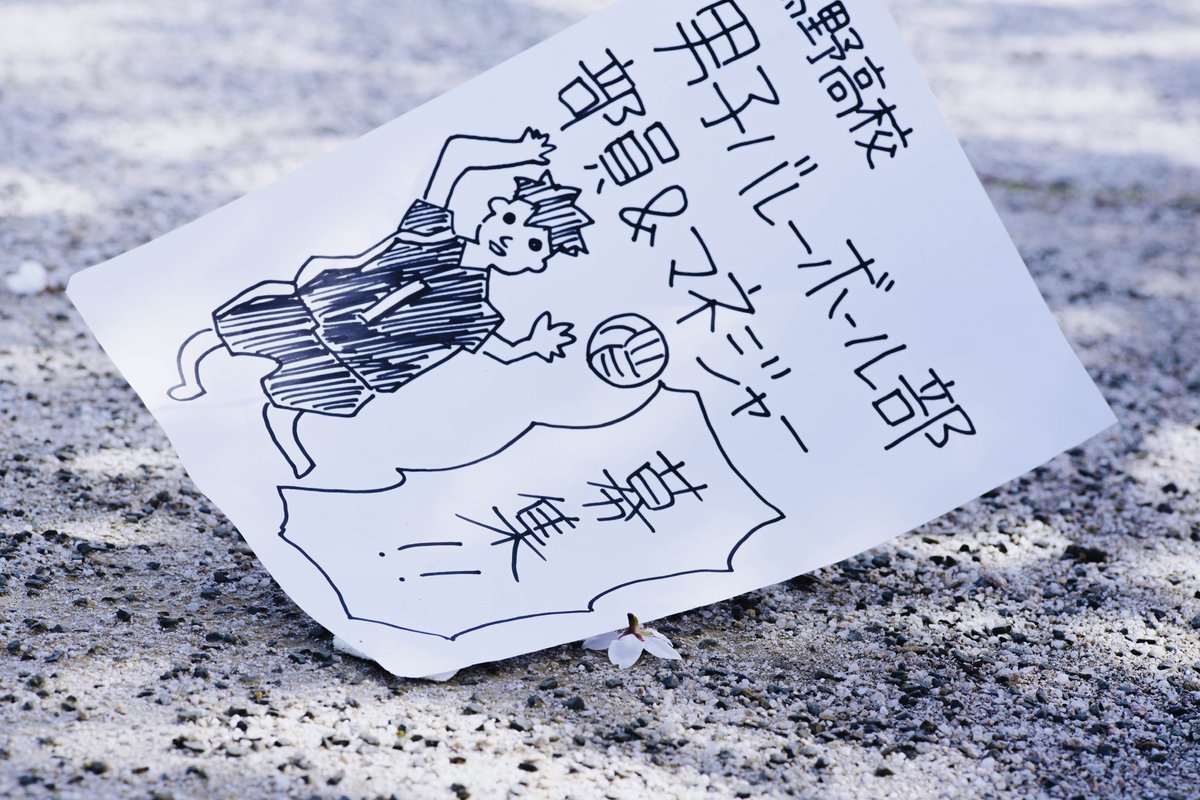 野高校
男子バレーボール部
部員&マネージャー
募集!!